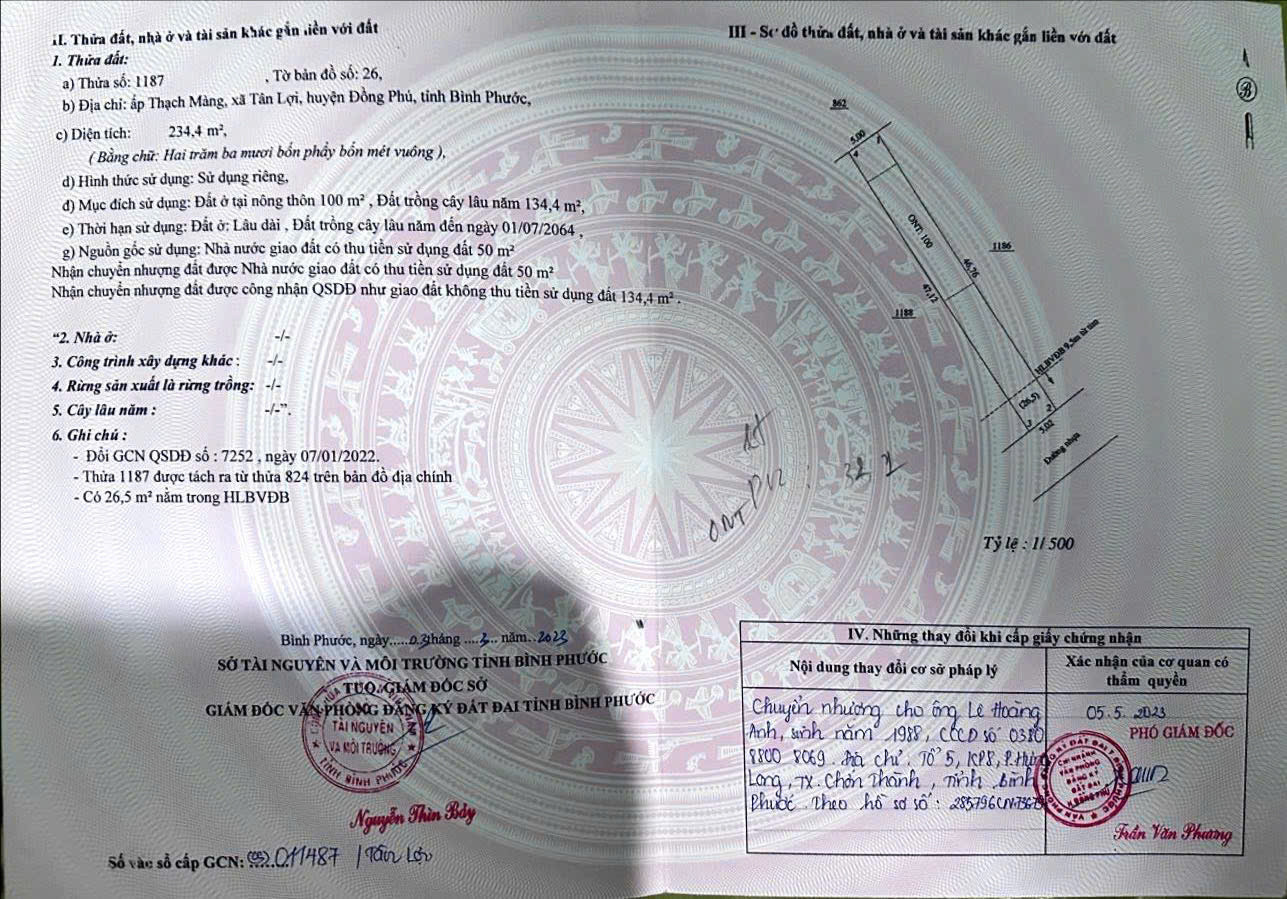 II. Thửa đất, nhà ở và tài sản khác gắn liền với đất
1. Thửa đất:
a) Thửa số: 1187 , Tờ bản đồ số: 26,
b) Địa chỉ: ấp Thạch Màng, xã Tân Lợi, huyện Đồng Phú, tỉnh Bình Phước,
c) Diện tích: 234,4 m²,
( Bằng chữ: Hai trăm ba mươi bốn phẩy bốn mét vuông ),
d) Hình thức sử dụng: Sử dụng riêng,
đ) Mục đích sử dụng: Đất ở tại nông thôn 100 m² , Đất trồng cây lâu năm 134,4 m²,
e) Thời hạn sử dụng: Đất ở: Lâu dài , Đất trồng cây lâu năm đến ngày 01/07/2064 ,
g) Nguồn gốc sử dụng: Nhà nước giao đất có thu tiền sử dụng đất 50 m²
Nhận chuyển nhượng đất được Nhà nước giao đất có thu tiền sử dụng đất 50 m²
Nhận chuyển nhượng đất được công nhận QSDĐ như giao đất không thu tiền sử dụng đất 134,4 m² .
“2. Nhà ở: -/-
3. Công trình xây dựng khác : -/-
4. Rừng sản xuất là rừng trồng: -/-
5. Cây lâu năm : -/-”.
6. Ghi chú :
- Đổi GCN QSDĐ số : 7252 , ngày 07/01/2022.
- Thửa 1187 được tách ra từ thửa 824 trên bản đồ địa chính
- Có 26,5 m² nằm trong HLBVĐB
Bình Phước, ngày.....03tháng ....3... năm..2023
SỞ TÀI NGUYÊN VÀ MÔI TRƯỜNG TỈNH BÌNH PHƯỚC
TUQ. GIÁM ĐỐC SỞ
GIÁM ĐỐC VĂN PHÒNG ĐĂNG KÝ ĐẤT ĐAI TỈNH BÌNH PHƯỚC
TÀI NGUYÊN
VÀ MÔI TRƯỜNG
TỈNH BÌNH PHƯỚC
Nguyễn Thìn Bảy
Số vào sổ cấp GCN: 011487 / Tân Lợi
III - Sơ đồ thửa đất, nhà ở và tài sản khác gắn liền với đất
B
862
5.00
4
1
ONT: 100
1186
46,76
47,12
1188
HLBVĐB 9,5m từ tim
(26,5)
2
3
5.02
Đường nhựa
ONT
Tỷ lệ : 1/ 500
IV. Những thay đổi khi cấp giấy chứng nhận
Nội dung thay đổi cơ sở pháp lý
Xác nhận của cơ quan có
thẩm quyền
Chuyển nhượng cho ông Lê Hoàng
Anh, sinh năm 1988, CCCD số 0380
8800 8069. Địa chỉ: Tổ 5, KP8, P. Hưng
Long, TX. Chơn Thành, Tỉnh Bình
Phước. Theo hồ sơ số: 285796
05.5.2023
PHÓ GIÁM ĐỐC
CHI NHÁNH
VĂN PHÒNG
ĐĂNG KÝ
ĐẤT ĐAI
H. ĐỒNG PHÚ
Trần Văn Phương